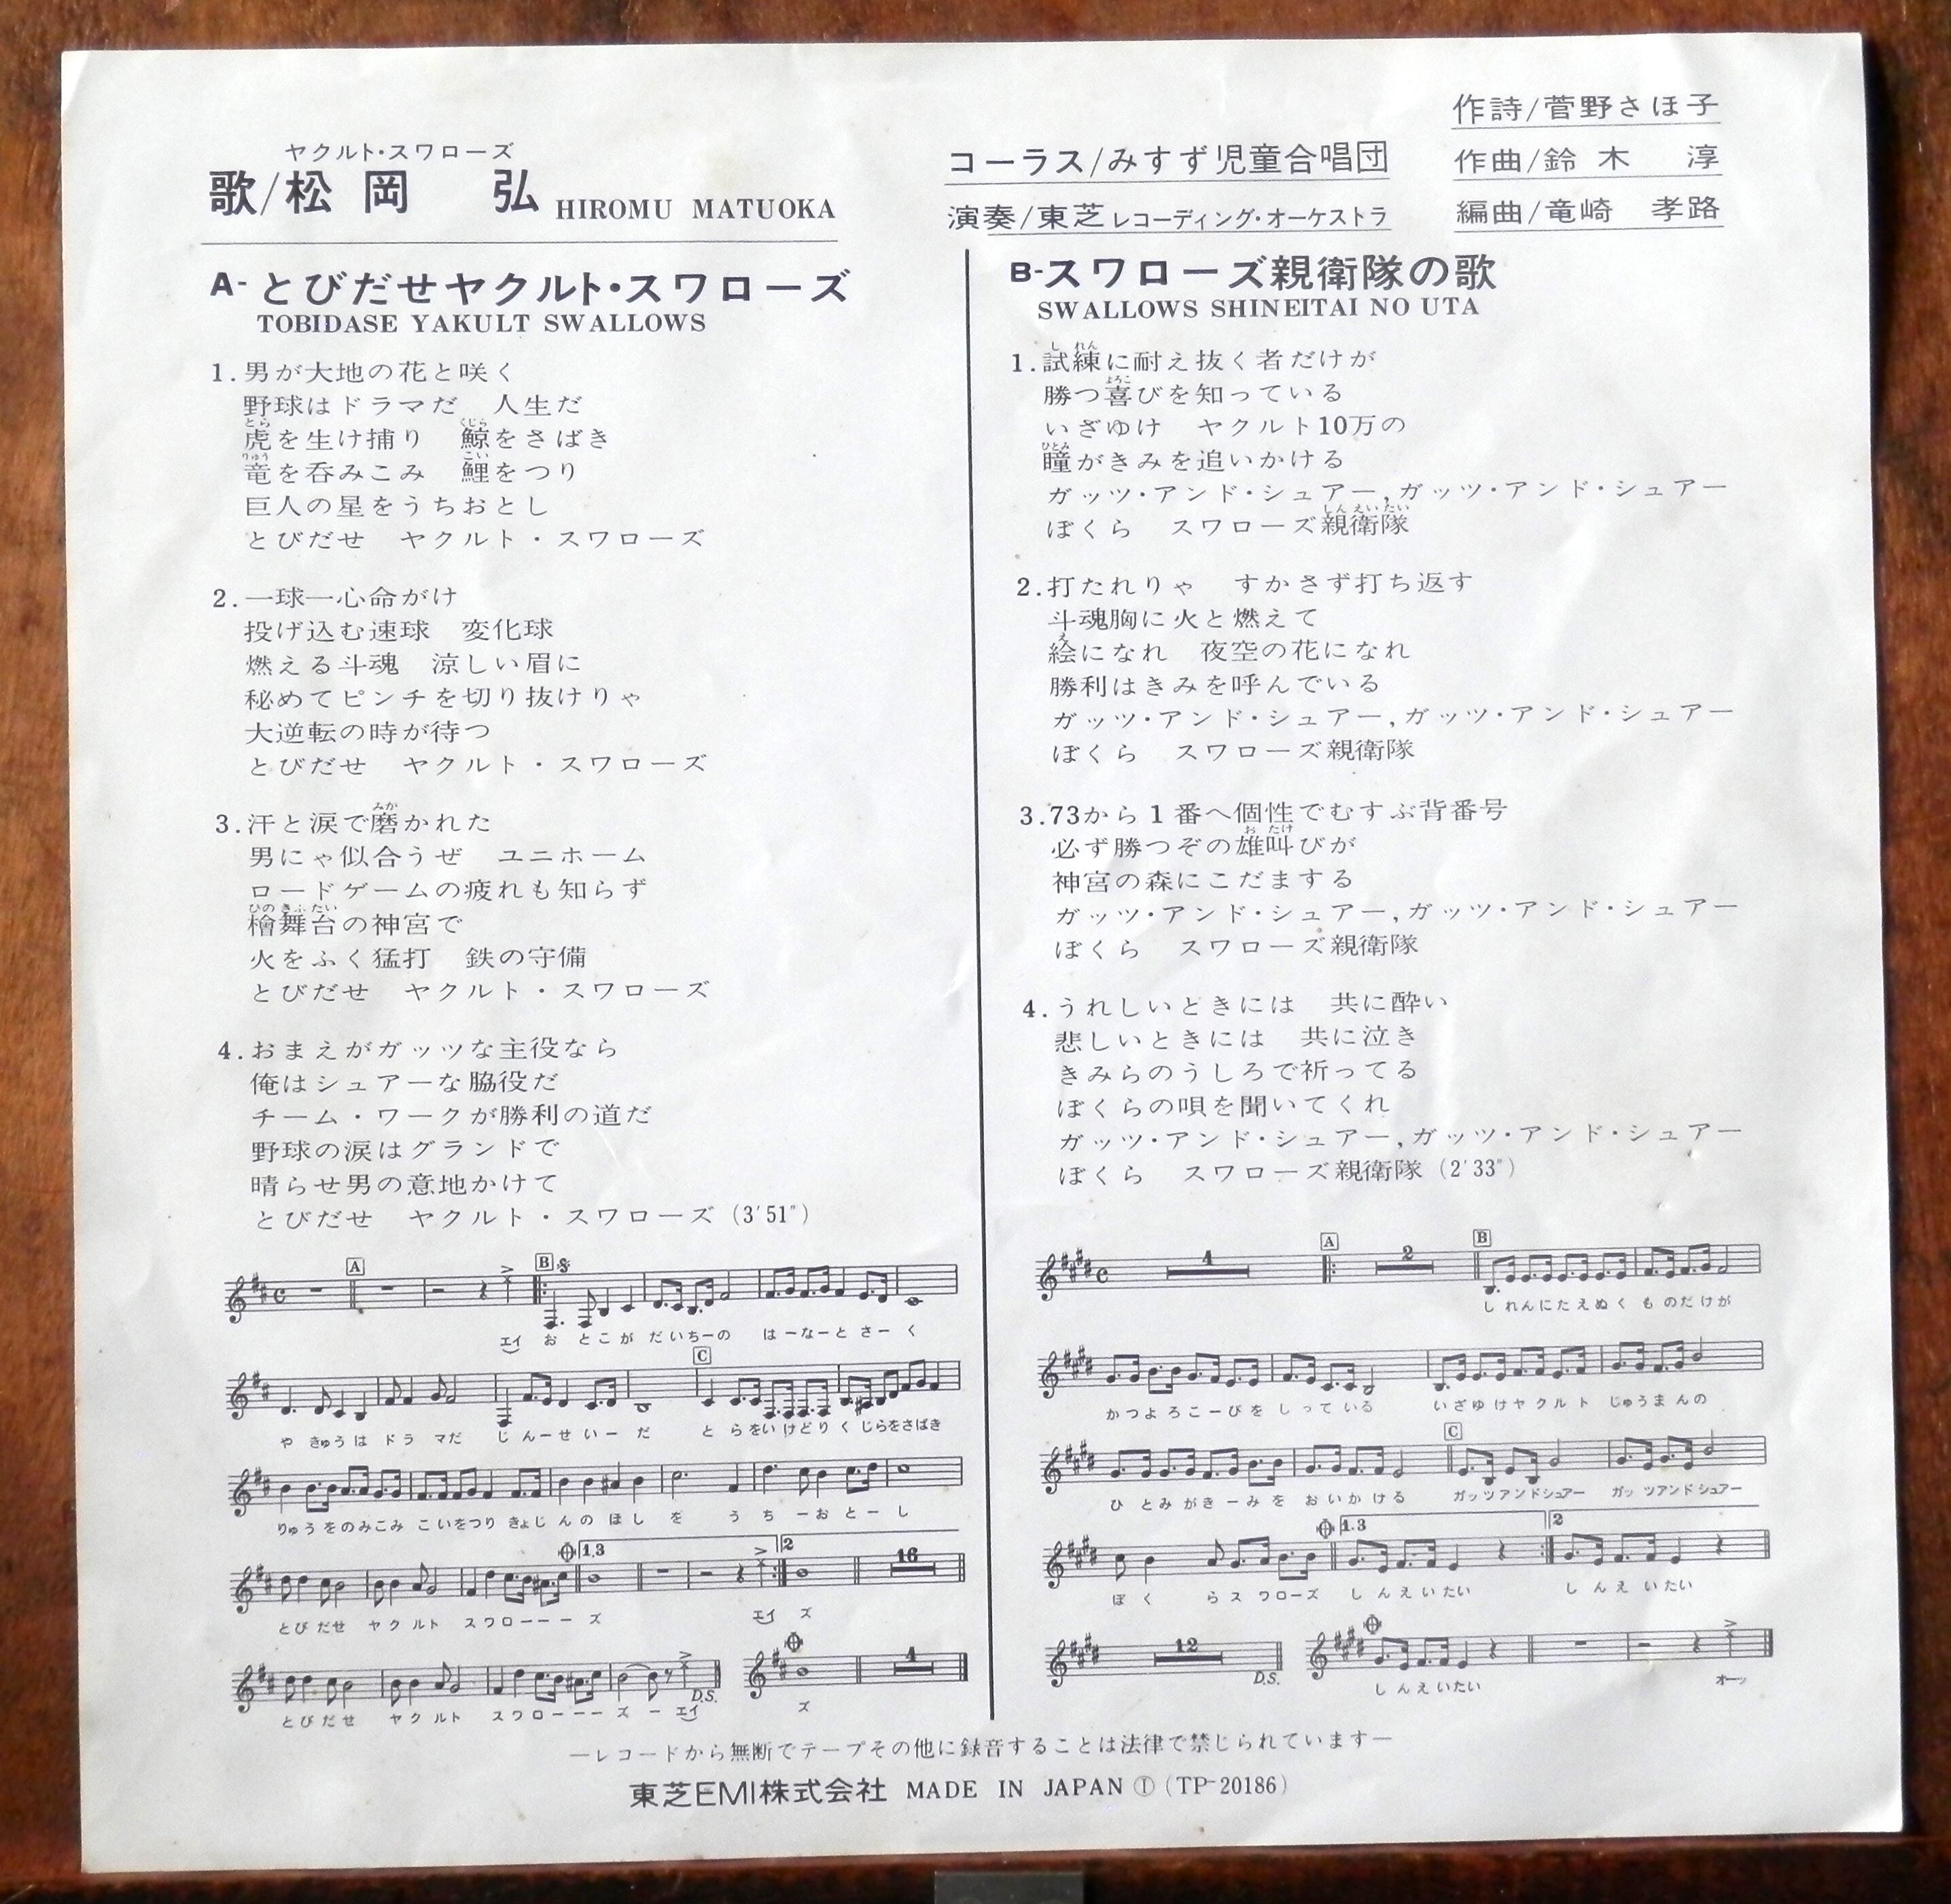 ヤクルト・スワローズ
歌/松岡 弘 HIROMU MATUOKA
コーラス/みすず児童合唱団
演奏/東芝レコーディング・オーケストラ
作詩/菅野さほ子
作曲/鈴木 淳
編曲/竜崎 孝路
A-とびだせヤクルト・スワローズ
TOBIDASE YAKULT SWALLOWS
1.男が大地の花と咲く
野球はドラマだ 人生だ
とら くじら
虎を生け捕り 鯨をさばき
りゅう こい
竜を呑みこみ 鯉をつり
巨人の星をうちおとし
とびだせ ヤクルト・スワローズ
2.一球一心命がけ
投げ込む速球 変化球
燃える斗魂 涼しい眉に
秘めてピンチを切り抜けりゃ
大逆転の時が待つ
とびだせ ヤクルト・スワローズ
みが
3.汗と涙で磨かれた
男にゃ似合うぜ ユニホーム
ロードゲームの疲れも知らず
ひのきぶたい
檜舞台の神宮で
火をふく猛打 鉄の守備
とびだせ ヤクルト・スワローズ
4.おまえがガッツな主役なら
俺はシュアーな脇役だ
チーム・ワークが勝利の道だ
野球の涙はグランドで
晴らせ男の意地かけて
とびだせ ヤクルト・スワローズ（3′51″）
A B
エイ おとこが だいちーの はーなーと さーく
C
や きゅうは ドラ マだ じんーせいー だ とらをいけどりくじらをさばき
りゅうをのみこみ こいをつり きょじんのほし を う ちーおとーし
1,3 2 16
とびだせ ヤクルト スワローーーズ エイ ズ
4
とびだせ ヤクルト スワローーーズーエイ D.S. ズ
B-スワローズ親衛隊の歌
SWALLOWS SHINEITAI NO UTA
し れん
1.試練に耐え抜く者だけが
よろこ
勝つ喜びを知っている
いざゆけ ヤクルト10万の
ひとみ
瞳がきみを追いかける
ガッツ・アンド・シュアー,ガッツ・アンド・シュアー
しんえいたい
ぼくら スワローズ親衛隊
2.打たれりゃ すかさず打ち返す
斗魂胸に火と燃えて
え
絵になれ 夜空の花になれ
勝利はきみを呼んでいる
ガッツ・アンド・シュアー,ガッツ・アンド・シュアー
ぼくら スワローズ親衛隊
3.73から1番へ個性でむすぶ背番号
お たけ
必ず勝つぞの雄叫びが
神宮の森にこだまする
ガッツ・アンド・シュアー,ガッツ・アンド・シュアー
ぼくら スワローズ親衛隊
4.うれしいときには 共に酔い
悲しいときには 共に泣き
きみらのうしろで祈ってる
ぼくらの唄を聞いてくれ
ガッツ・アンド・シュアー,ガッツ・アンド・シュアー
ぼくら スワローズ親衛隊（2′33″）
4 A 2 B
しれんにたえぬくものだけが
かつよろこーびを しっている いざゆけヤクルト じゅうまんの
C
ひとみがきーみを おいかける ガッツアンドシュアー ガッツアンドシュアー
1.3 2
ぼく らスワローズ しんえいたい しんえいたい
12
D.S. しんえいたい オーッ
―レコードから無断でテープその他に録音することは法律で禁じられています―
東芝EMI株式会社 MADE IN JAPAN Ⓣ（TP-20186）